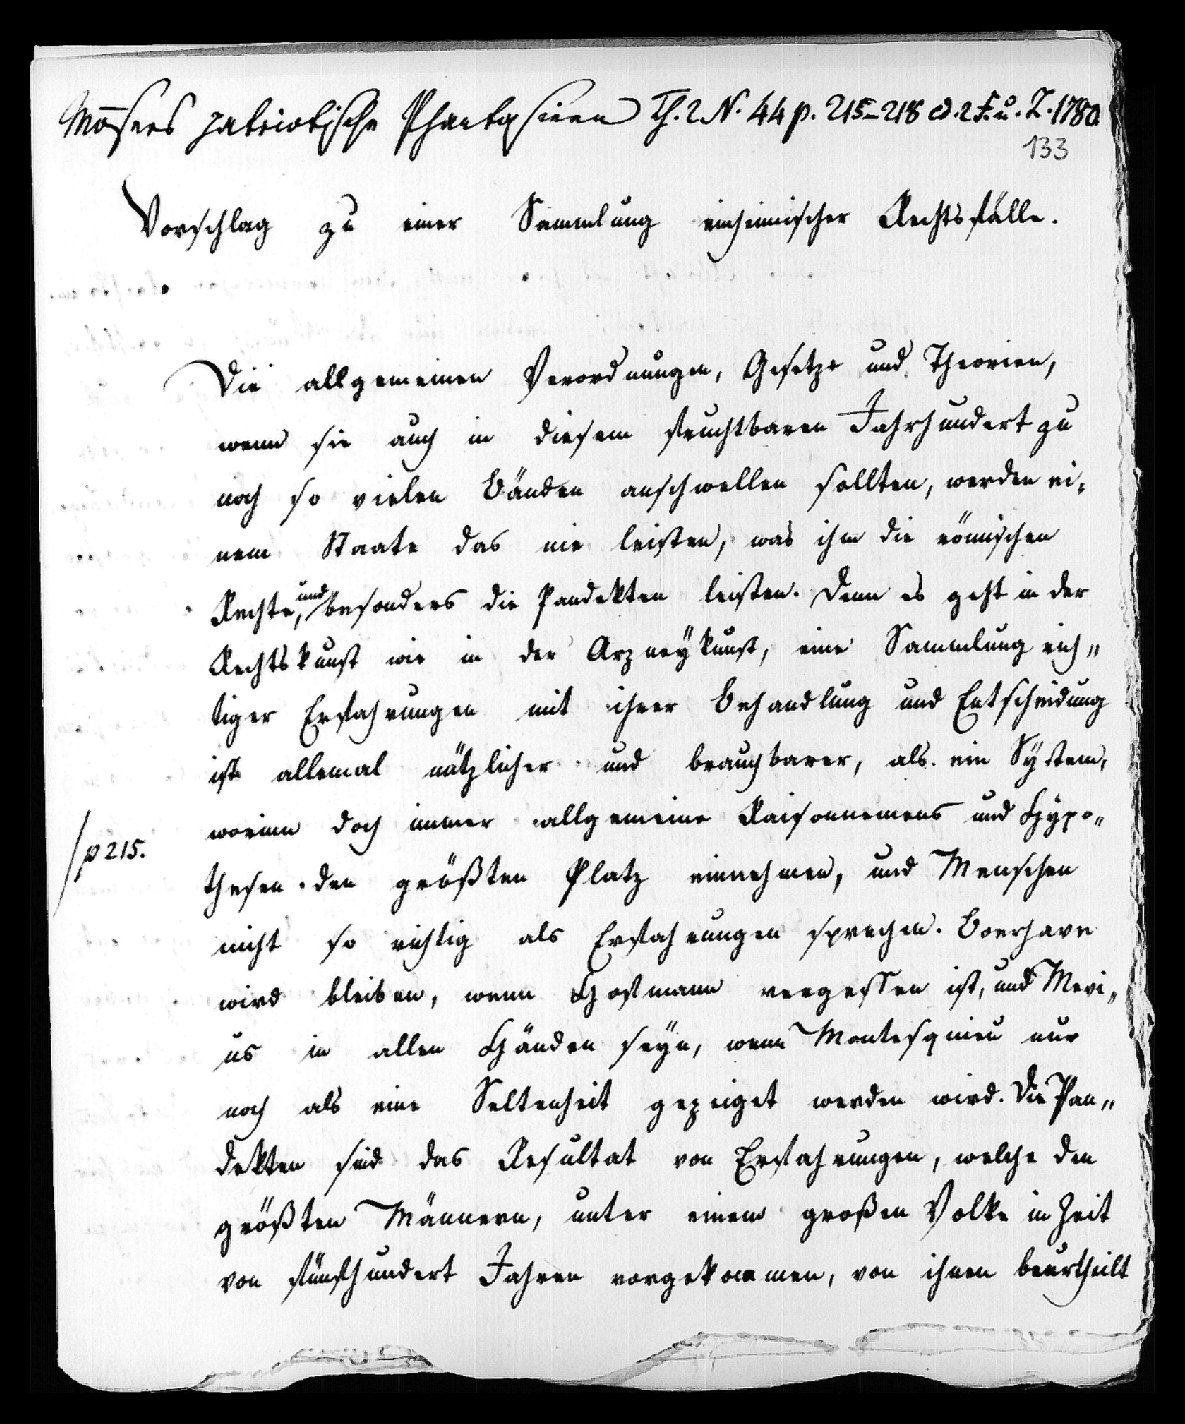 Mösers patriotische Phantasieen Th. 2 N. 44 p. 215-218 ed. 2 F. u. L. 1780
133
Vorschlag zu einer Sammlung einheimischer Rechtsfälle.
Die allgemeinen Verordnungen, Gesetze und Theorien,
wenn sie auch in diesem fruchtbaren Jahrhundert zu
noch so vielen Bänden anschwellen sollten, werden ei-
nem Staate das nie leisten, was ihm die römischen
Rechte, und besonders die Pandekten leisten. Denn es geht in der
Rechtskunst wie in der Arzneykunst, eine Sammlung rich-
tiger Erfahrungen mit ihrer Behandlung und Entscheidung
ist allemal nützlicher und brauchbarer, als ein System,
worinn doch immer allgemeine Raisonnemens und Hypo-
/p 215.
thesen den größten Platz einnehmen, und Menschen
nicht so richtig als Erfahrungen sprechen. Boerhave
wird bleiben, wenn Hofmann vergessen ist, und Mevi-
us in allen Händen seyn, wenn Montesquieu nur
noch als eine Seltenheit gezeiget werden wird. Die Pan-
dekten sind das Resultat von Erfahrungen, welche den
größten Männern, unter einem großen Volke in Zeit
von fünfhundert Jahren vorgekommen, von ihnen beurtheilt